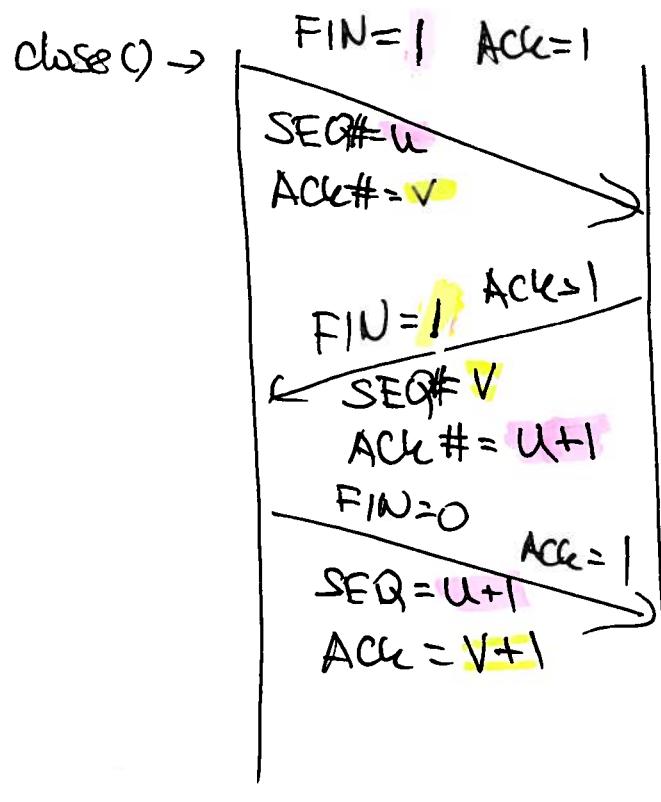 close() → FIN=1 ACK=1
SEQ#=u
ACK#=v
FIN=1 ACK=1
SEQ#=v
ACK#=u+1
FIN=0 ACK=1
SEQ=u+1
ACK=v+1